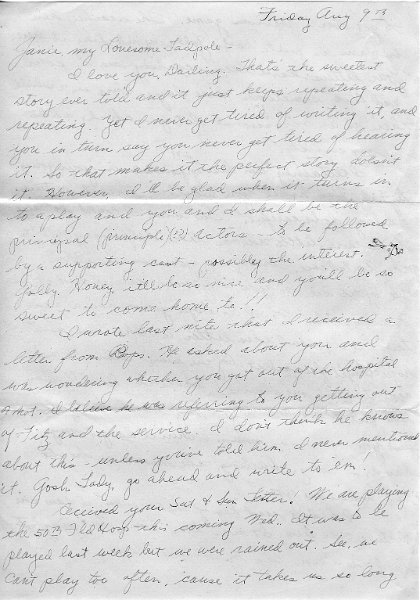 Friday Aug 9th
Janie my Lonesome Tadpole -
I love you Darling. That's the sweetest
story ever told and it just keeps repeating and
repeating. Yet I never get tired of writing it, and
you in turn say you never get tired of hearing
it. So that makes it the perfect story doesn't
it. However, I'll be glad when it turns in
to a play and you and I shall be the
prinsypal (principle)(?) actors - to be followed
by a supporting cast - possibly the interest.
folly. Honey it'll be so nice and you'll be so
sweet to come home to!!
I wrote last nite that I received a
letter from Pops. He asked about you and
was wondering whether you got out of the hospital
or not. I believe he was referring to you getting out
of Fitz and the service. I don't think he knows
about this - unless you've told him. I never mentioned
it. Gosh Toby, go ahead and write to em!
Received your Sat & Sun letter! We are playing
the 50th Fld Hosp this coming Wed. It was to be
played last week but we were rained out. See, we
can't play too often, 'cause it takes us so long